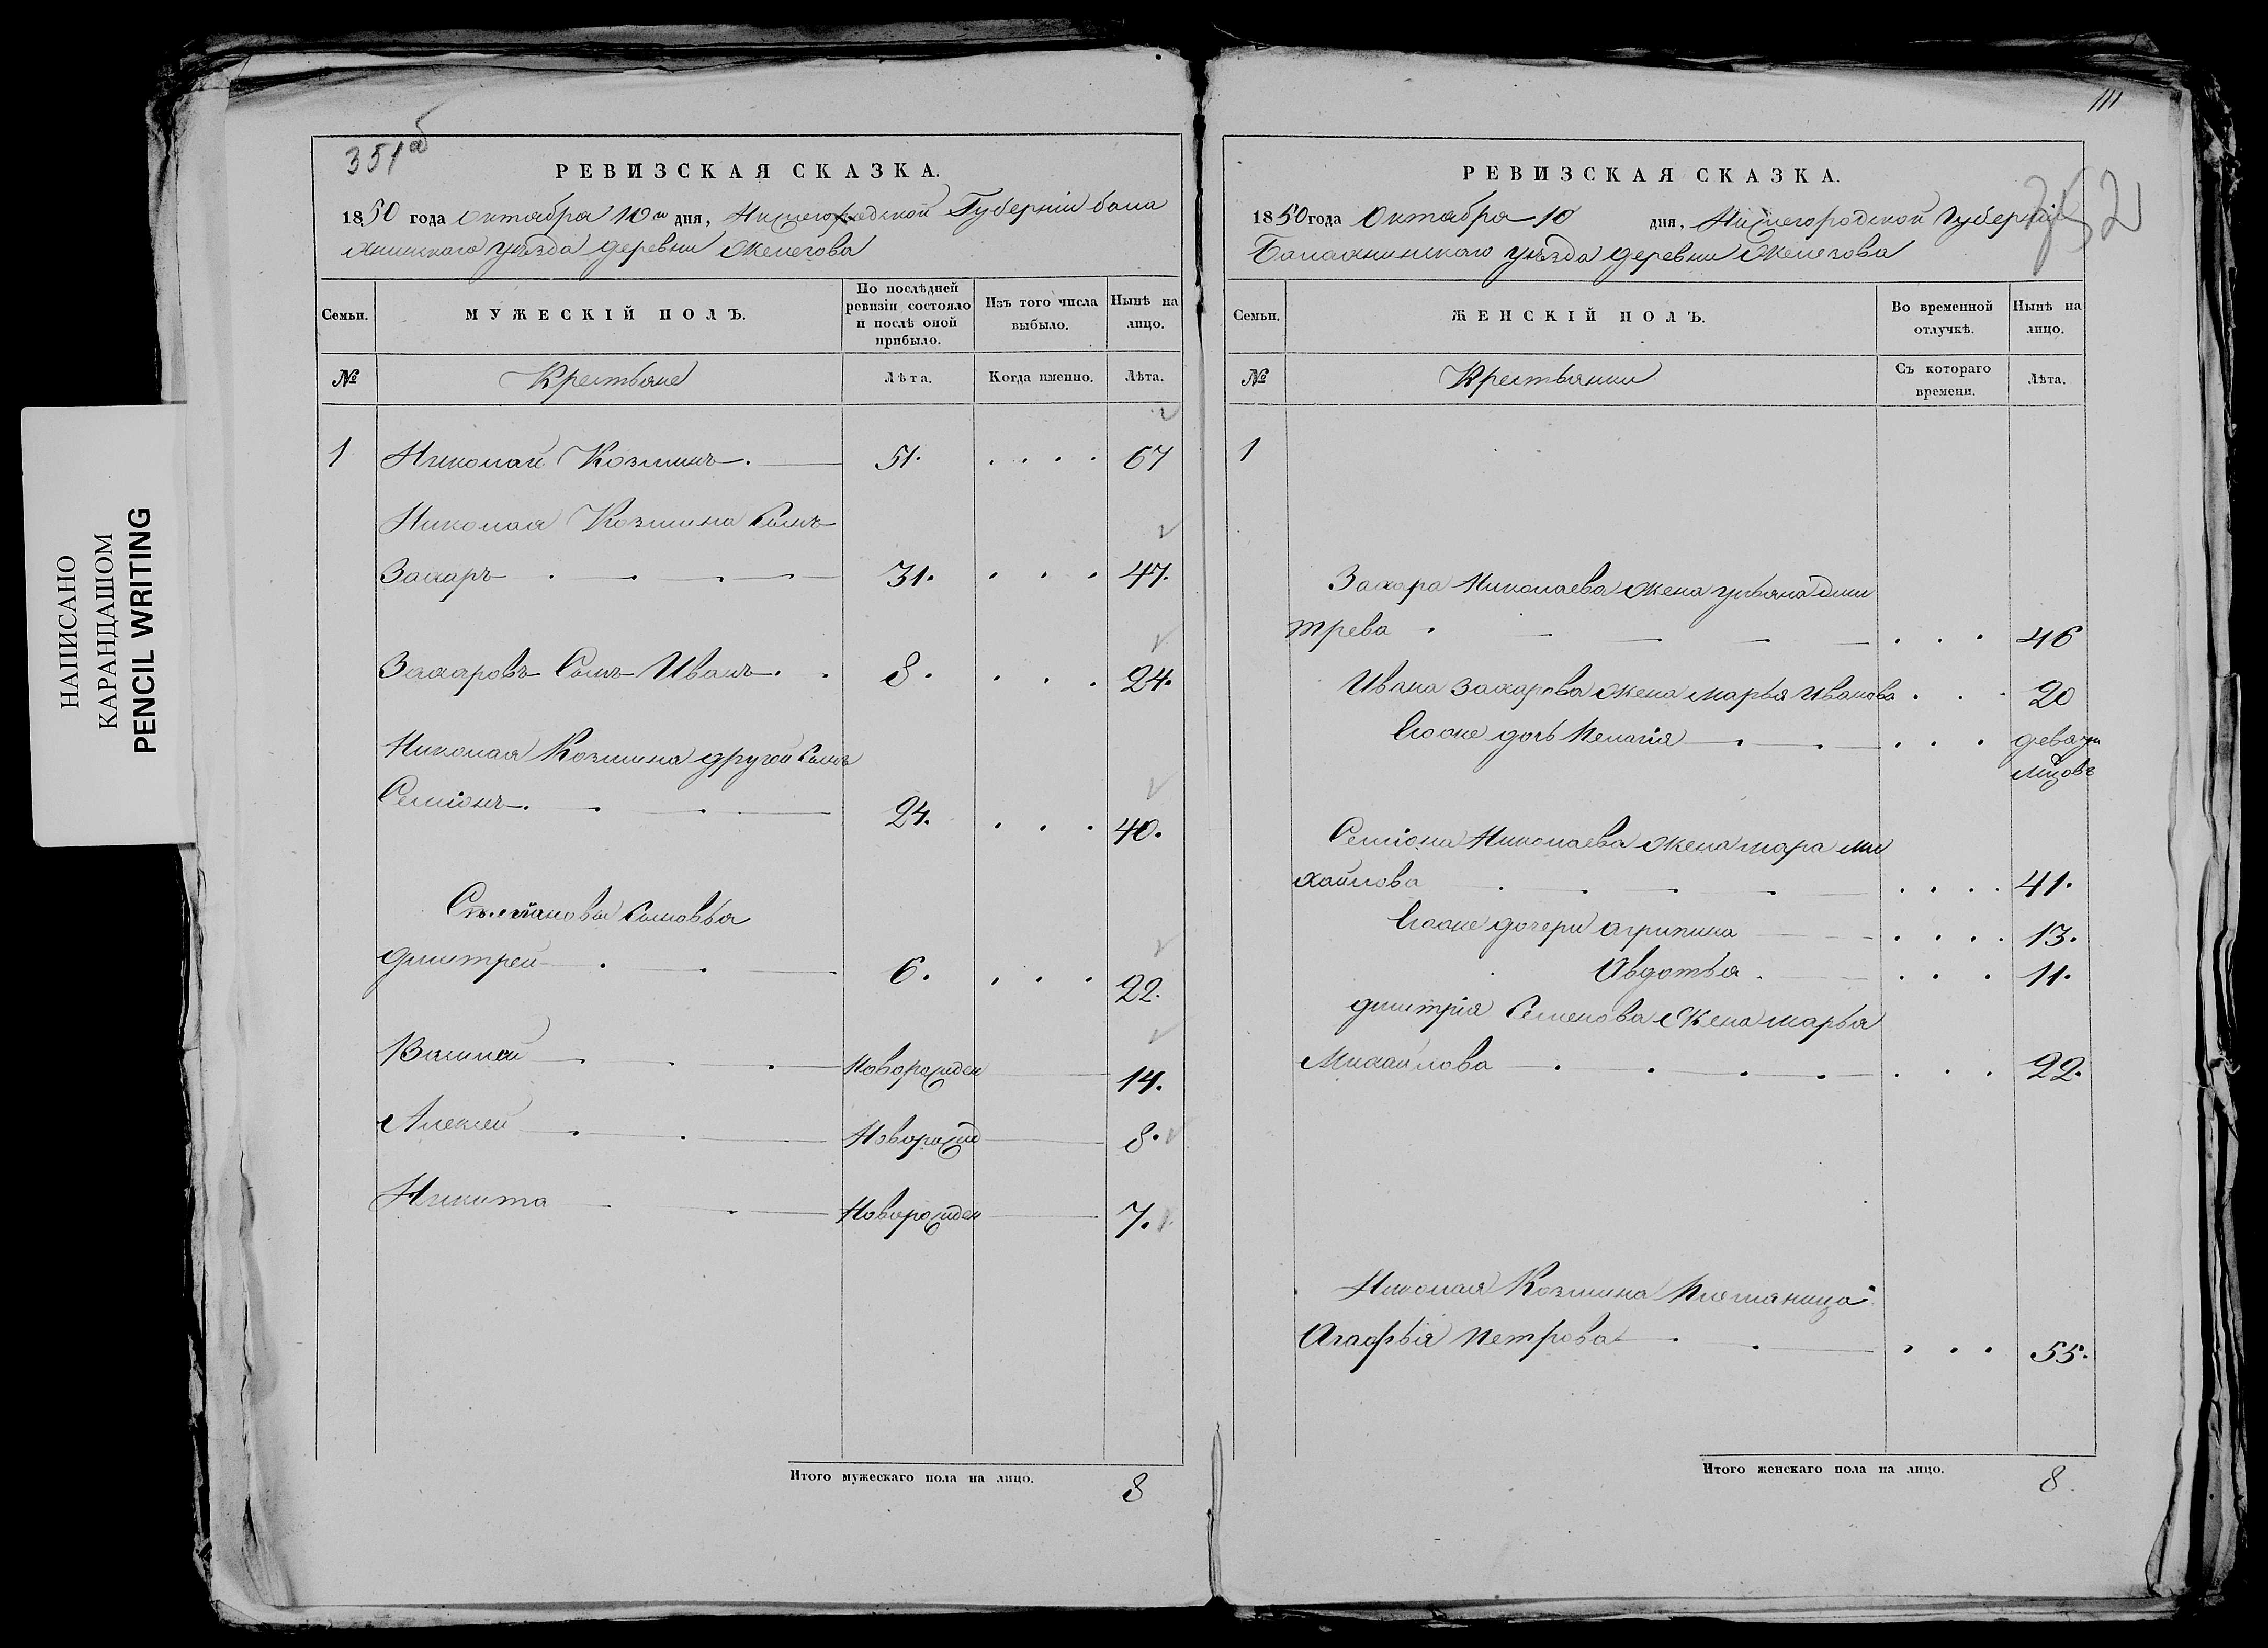 351 об
РЕВИЗСКАЯ СКАЗКА.
1850 года Октября 10 дня, Нижегородской Губернiи бала
хнинскаго уѣзда деревни Желегова
Семьи.
МУЖЕСКІЙ ПОЛЪ.
По послѣдней ревизіи состояло и послѣ оной прибыло.
Изъ того числа выбыло.
Нынѣ на лицо.
№
Крестьяне
Лѣта.
Когда именно.
Лѣта.
1 Николай Козминъ. 51. 67
Николая Козмина Сынъ
Захаръ 31. 47.
Захаровъ Сынъ Иванъ. 8. 24.
Николая Козмина другой Сынъ
Семiонъ. 24. 40.
Сыновья
Дмитрей 6. 22.
Василей Новорожден 14.
Алексей Новорожд 8.
Никита Новорожден 7.
Итого мужескаго пола на лицо. 8
111
352
РЕВИЗСКАЯ СКАЗКА.
1850 года Октября 10 дня, Нижегородской Губернiи
Балахнинскаго уѣзда деревни Желегова
Семьи.
ЖЕНСКІЙ ПОЛЪ.
Во временной отлучкѣ.
Нынѣ на лицо.
№
Крестьянки
Съ котораго времени.
Лѣта.
1
Захара Николаева жена ульяна дми
трева 46
Ивана Захарова жена марья Иванова 20
Ихже дочь Пелагiя
Семiона Николаева жена мара ми
хайлова 41.
Ихже дочери огрипина 13.
Авдотья 11.
дмитрiя Семенова Жена марья
Михайлова 22.
Николая Козмина Племяница
Агафья Петрова 55.
Итого женскаго пола на лицо. 8.
НАПИСАНО
КАРАНДАШОМ
PENCIL WRITING